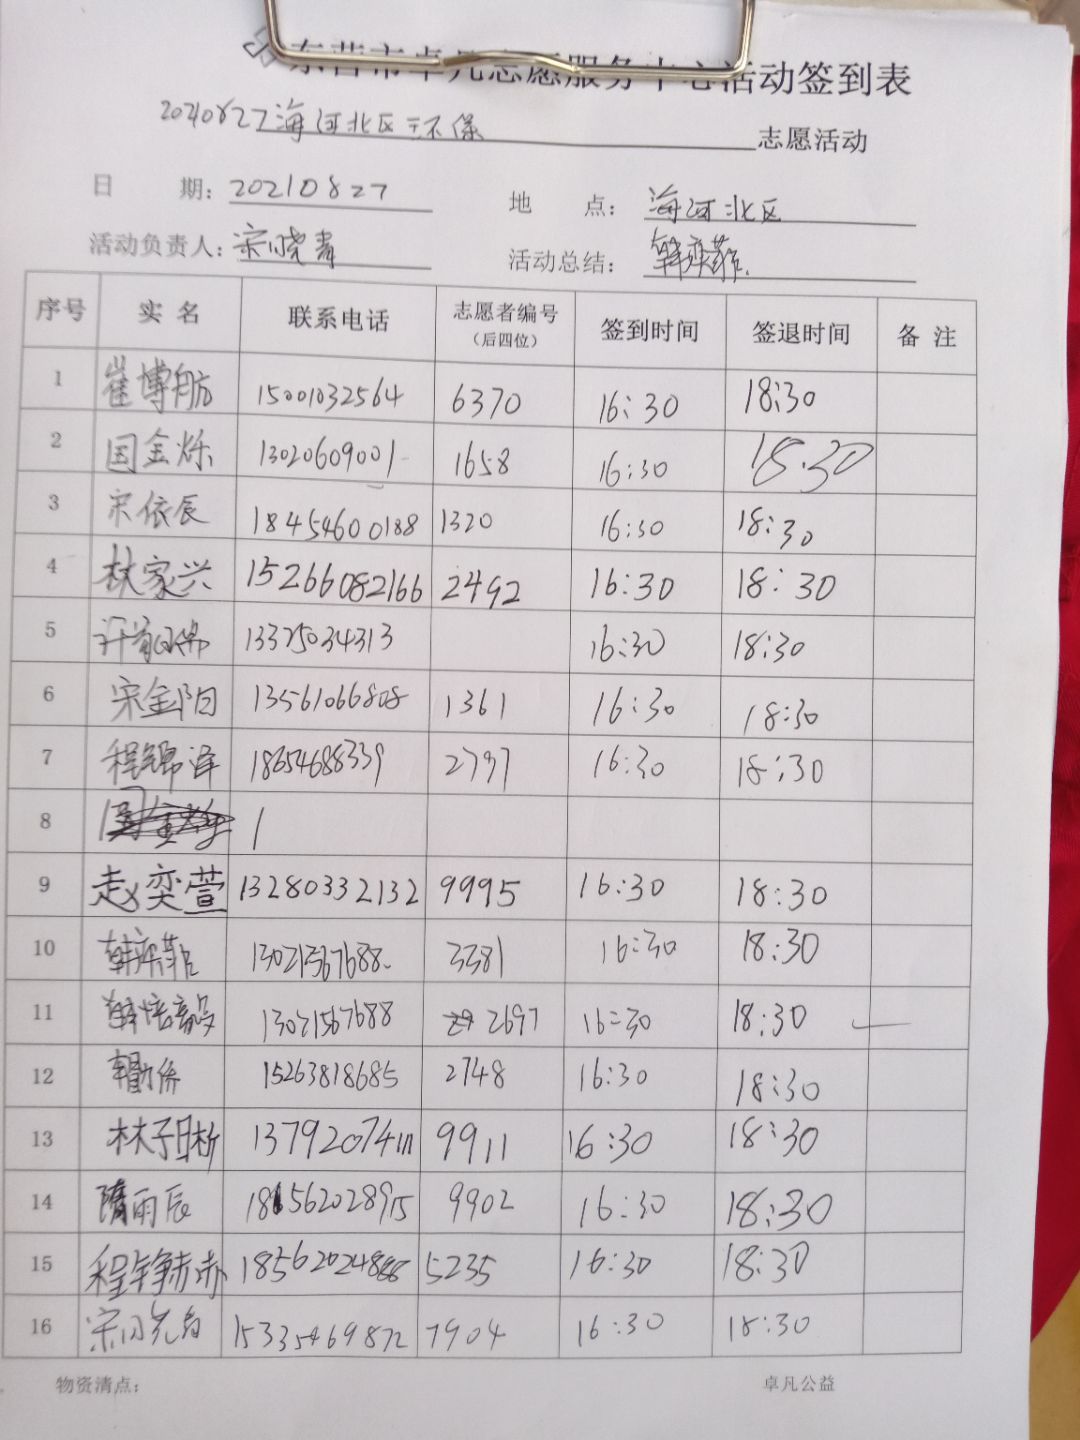 东营市卓凡志愿服务中心活动签到表
20210827海河北区环保 志愿活动
日 期: 20210827 地 点: 海河北区
活动负责人: 宋晓青 活动总结: 韩奕菲
序号 实 名 联系电话 志愿者编号 (后四位) 签到时间 签退时间 备 注
1 崔博航 15001032564 6370 16:30 18:30
2 国金烁 13020609001 1658 16:30 18:30
3 宋依辰 18454600188 1320 16:30 18:30
4 林家兴 15266082166 2492 16:30 18:30
5 13375034313 16:30 18:30
6 宋金阳 13561066808 1361 16:30 18:30
7 程锦泽 18654688339 2797 16:30 18:30
8
9 赵奕萱 13280332132 9995 16:30 18:30
10 韩奕菲 13021567688 3381 16:30 18:30
11 13021567688 2697 16:30 18:30
12 15263818685 2748 16:30 18:30
13 林子晰 9911 16:30 18:30
14 隋雨辰 9902 16:30 18:30
15 18562024888 5235 16:30 18:30
16 15335469872 7904 16:30 18:30
物资清点: 卓凡公益